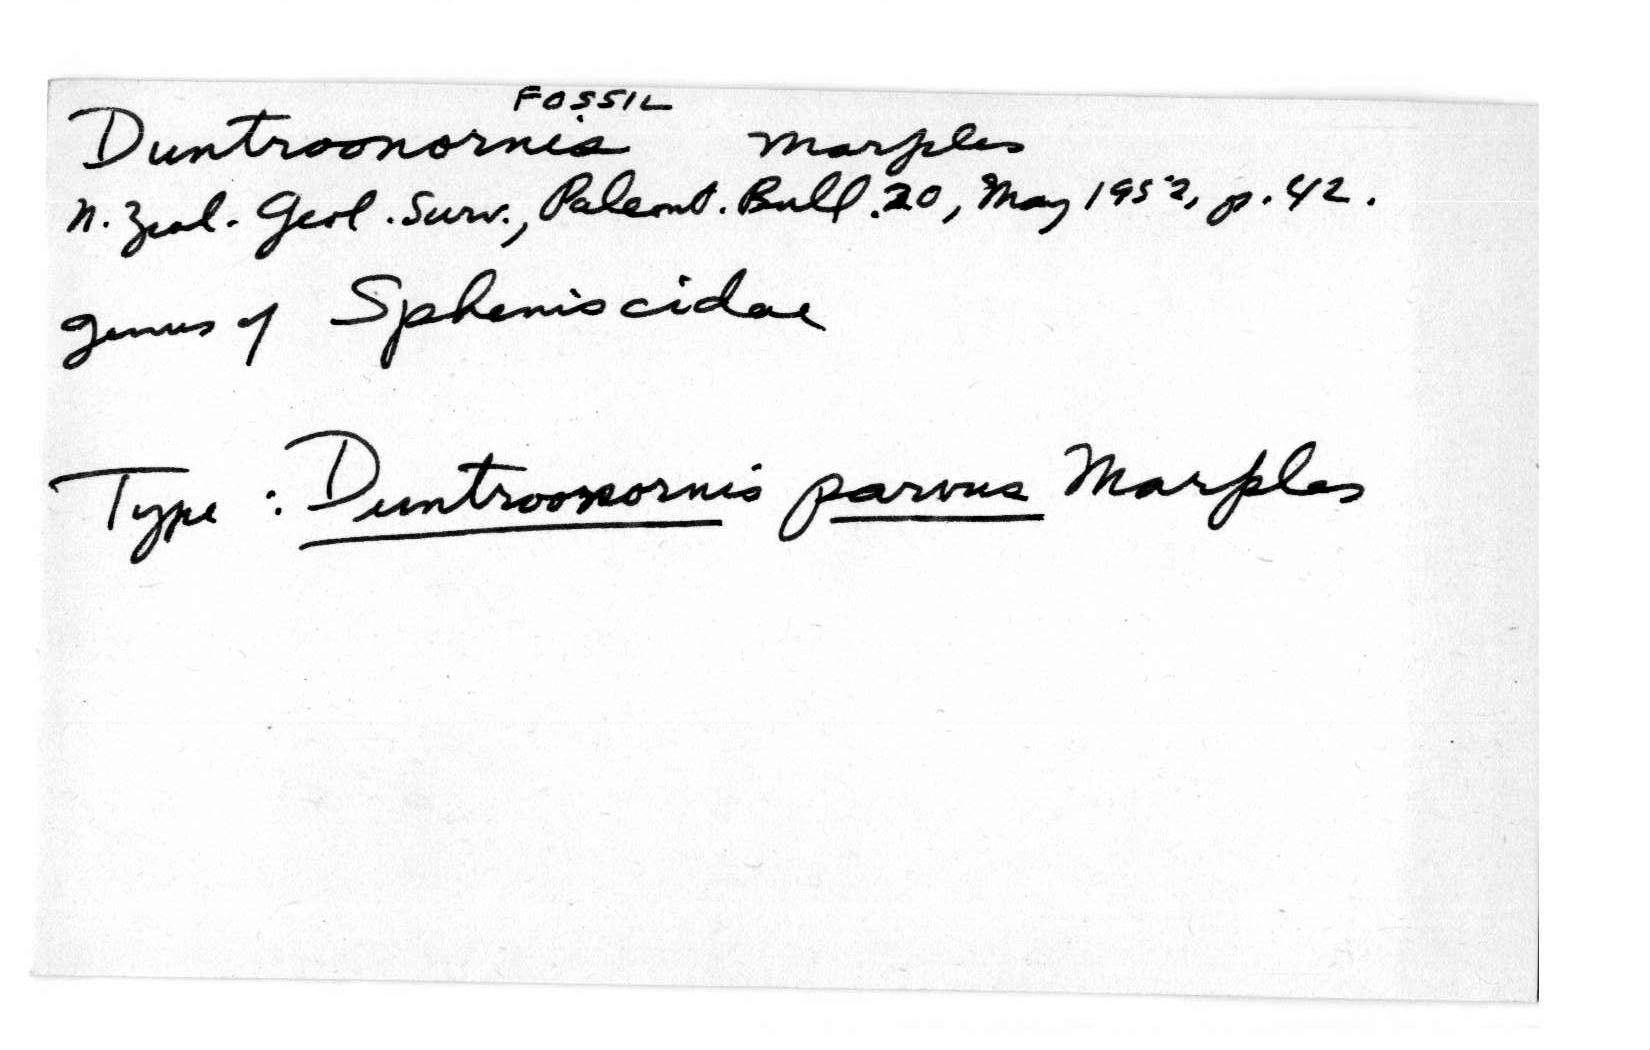 FOSSIL
Duntroonornis Marples
N. Zeal. Geol. Surv., Paleont. Bull. 20, May 1952, p. 42.
genus of Spheniscidae
Type : Duntroonornis parvus Marples